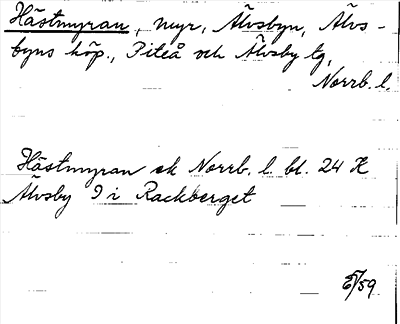 Hästmyran, myr, Älvsbyn, Älvs-
byns köp., Piteå och Älvsby tg,
Norrb. l.
Hästmyran ek Norrb. l. bl. 24 K
Älvsby 9 i Rackberget
/59